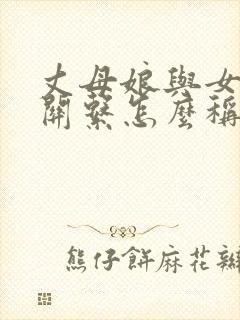 丈母娘與女
關繫怎麼稱
熊仔餅麻花辮